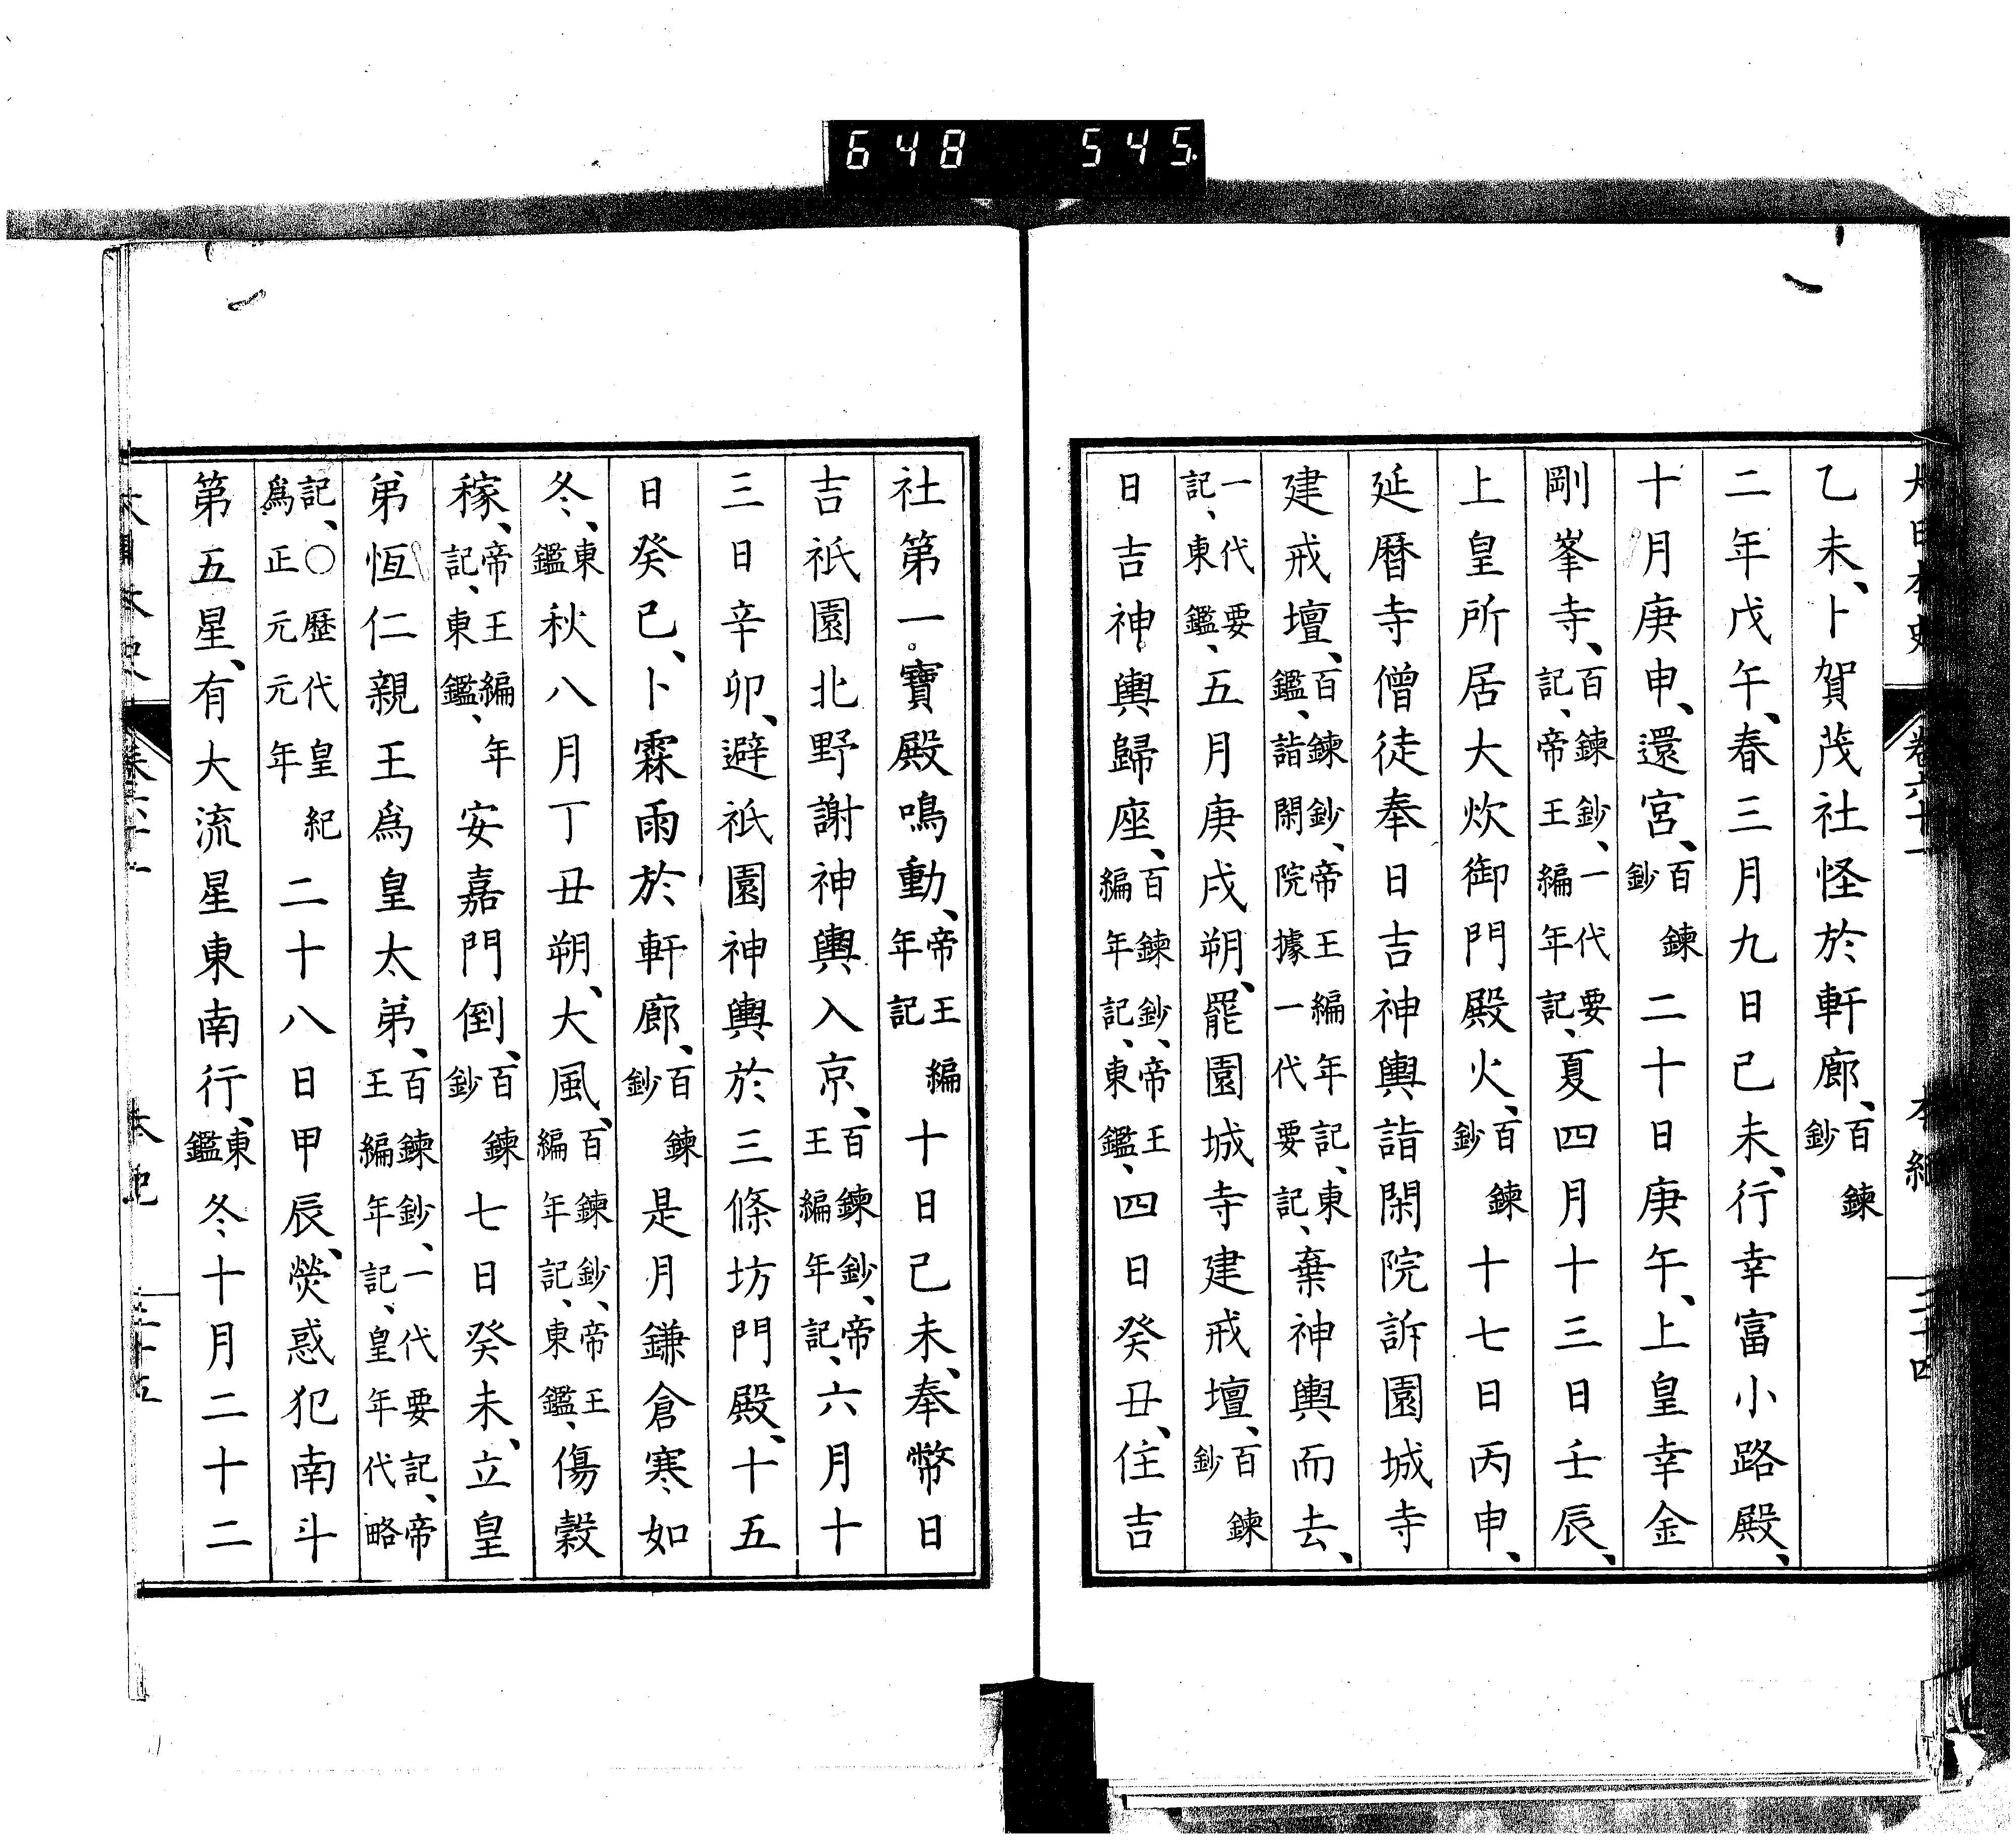 648 545
大日本史 卷六十一 本紀
乙未、卜賀茂社怪於軒廊、百鍊鈔
二年戊午、春三月九日己未、行幸富小路殿、
十月庚申、還宮、百鍊鈔二十日庚午、上皇幸金
剛峯寺、百鍊鈔、一代要記、帝王編年記、夏四月十三日壬辰、
上皇所居大炊御門殿火、百鍊鈔十七日丙申、
延曆寺僧徒奉日吉神輿詣閑院訴園城寺
建戒壇、百鍊鈔、帝王編年記、東鑑、詣閑院據一代要記、棄神輿而去、
一代要記、東鑑、五月庚戌朔、罷園城寺建戒壇、百鍊鈔
日吉神輿歸座、百鍊鈔、帝王編年記、東鑑、四日癸丑、住吉
社第一寶殿鳴動、帝王編年記十日己未、奉幣日
吉祇園北野謝神輿入京、百鍊鈔、帝王編年記、六月十
三日辛卯、避祇園神輿於三條坊門殿、十五
日癸巳、卜霖雨於軒廊、百鍊鈔是月鎌倉寒如
冬、東鑑秋八月丁丑朔、大風、百鍊鈔、帝王編年記、東鑑、傷穀
稼、帝王編年記、東鑑、安嘉門倒、百鍊鈔七日癸未、立皇
弟恆仁親王爲皇太弟、百鍊鈔、一代要記、帝王編年記、皇年代略
記、○歷代皇紀爲正元元年二十八日甲辰、熒惑犯南斗
第五星、有大流星東南行、東鑑冬十月二十二
大日本史 卷六十一 本紀 三十五